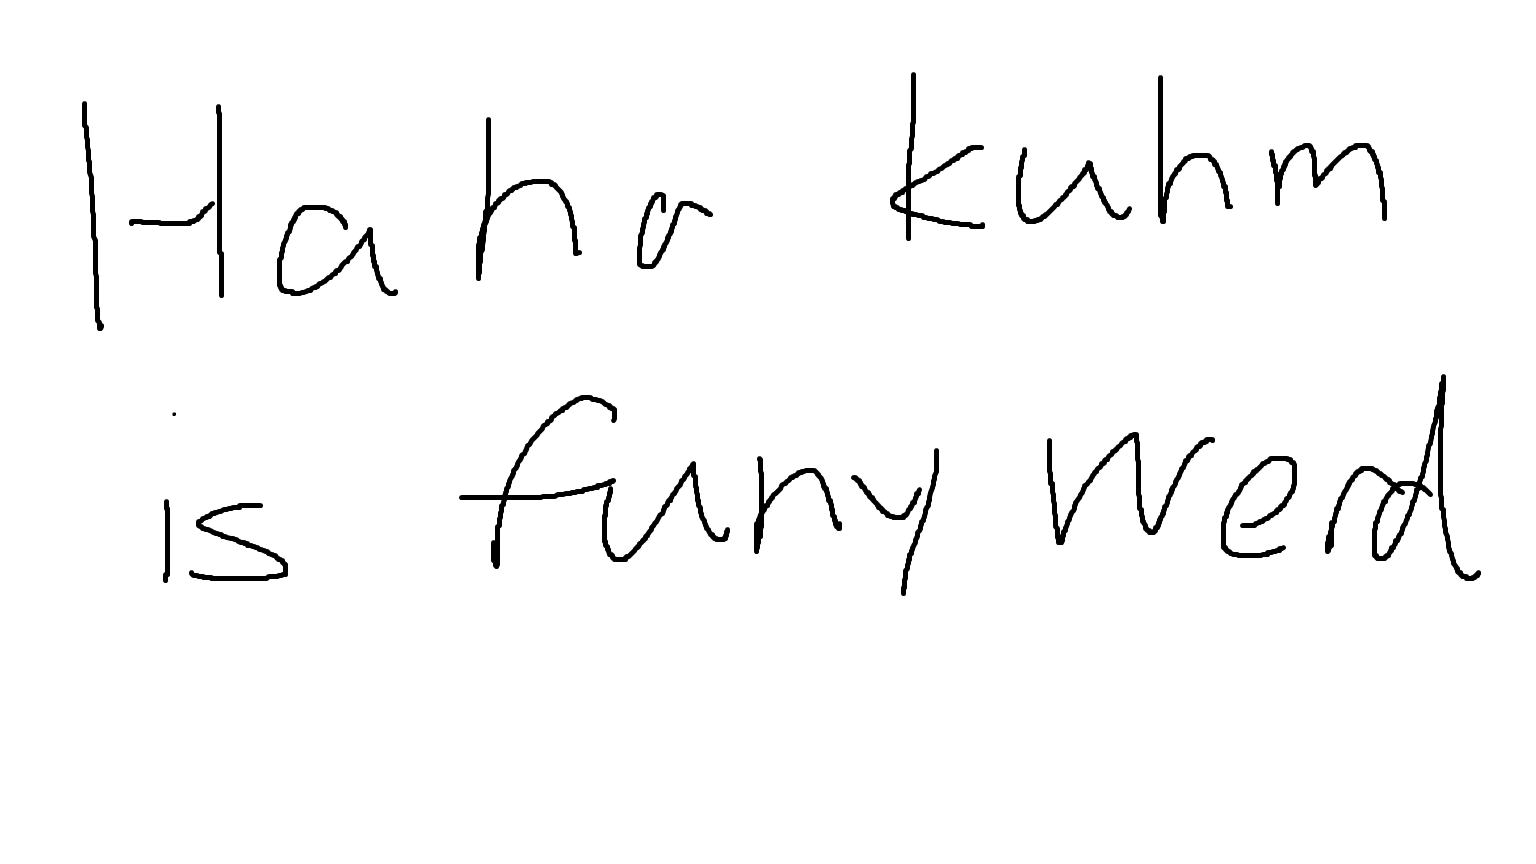 Haha kuhm
is funy werd